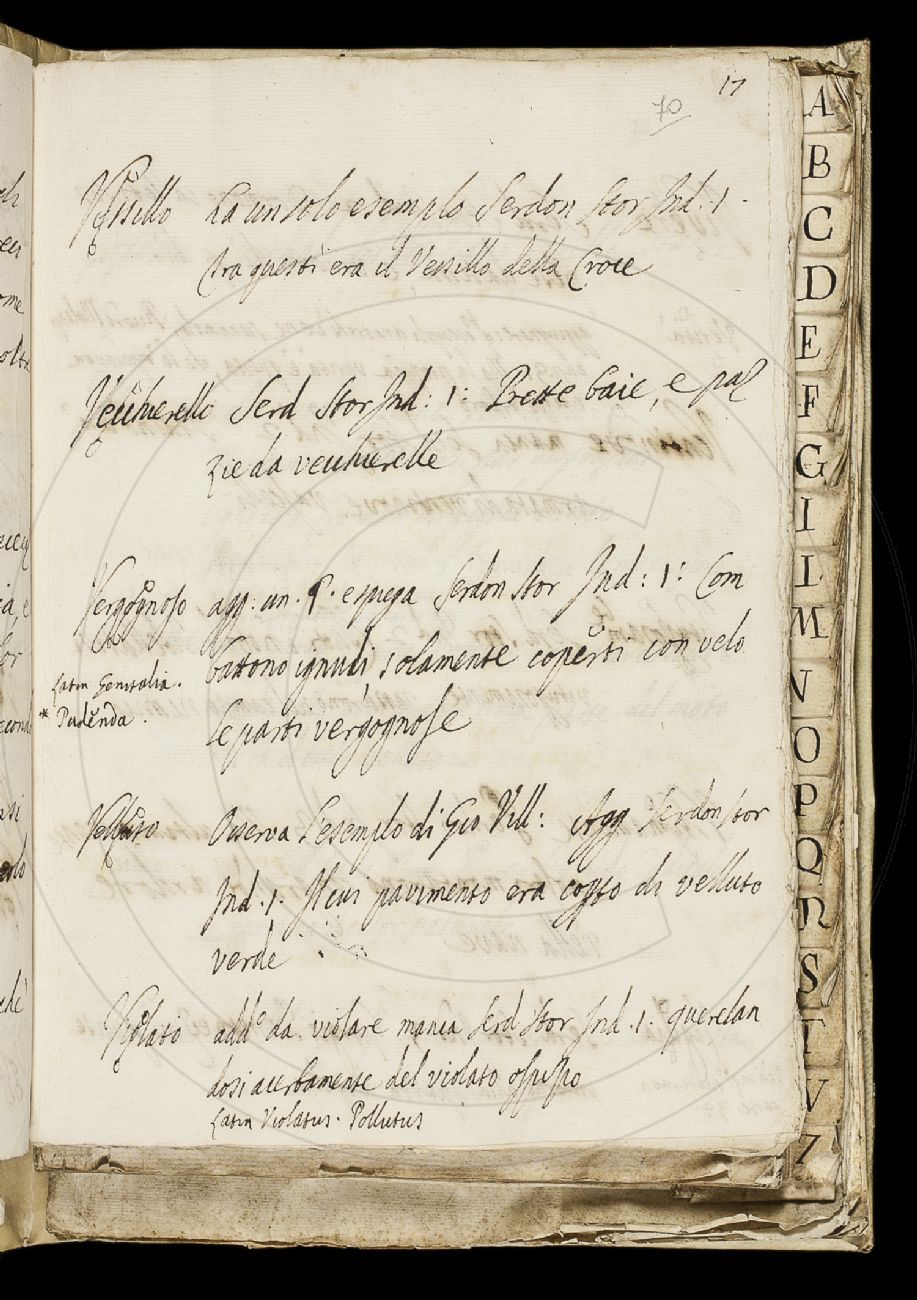 17
70
Vessillo Ha un solo esemplo Serdon Stor Ind. 1.
tra questi era il Vessillo della Croce
Vecchierello Serd Stor Ind: 1: Prette baie, e paz
zie da vecchierelle
Vergognoso agg: un. §. e spiega Serdon stor Ind: 1: Com
battono ignudi, solamente coperti con velo
le parti vergognose
Latin Genitalia.
* Pudenda.
Velluto Osserva l'esemplo di Gio Vill: Agg Serdon stor
Ind. 1. Il cui pavimento era copto di velluto
verde
Violato add.º da violare manca Serd Stor Ind. 1. querelan
dosi acerbamente del violato ospizio
Latin Violatus. Pollutus
A
B
C
D
E
F
G
I
L
M
N
O
P
Q
R
S
T
V
Z